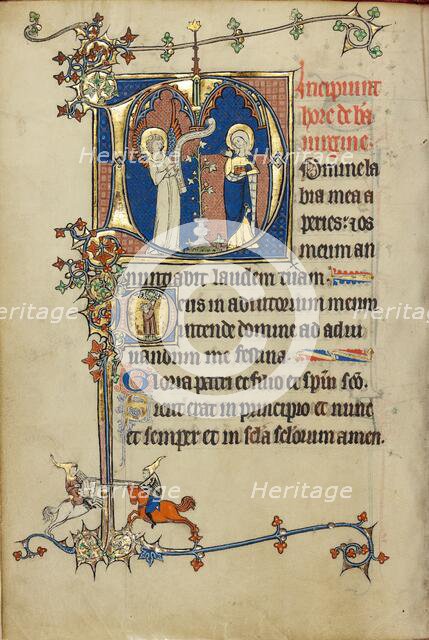 Incipiunt
hore de bā
uirgine.
Domine la
bia mea a
peries: et os
meum an
nuntiabit laudem tuam.
Deus in adiutorium meum
intende domine ad adiu
uandum me festina.
Gloria patri et filio et spiri sco.
Sicut erat in principio et nunc
et semper et in scla sclorum amen.
Heritage
Heritage
Heritage
Heritage
Heritage
Heritage
Heritage